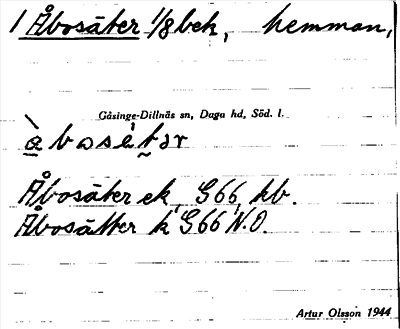 1 Åbosäter 1/8 bek, hemman,
Gåsinge-Dillnäs sn, Daga hd, Söd. l.
Åbosäter ek, G66, kb.
Åbosätter k G66 N.O.
Artur Olsson 1944